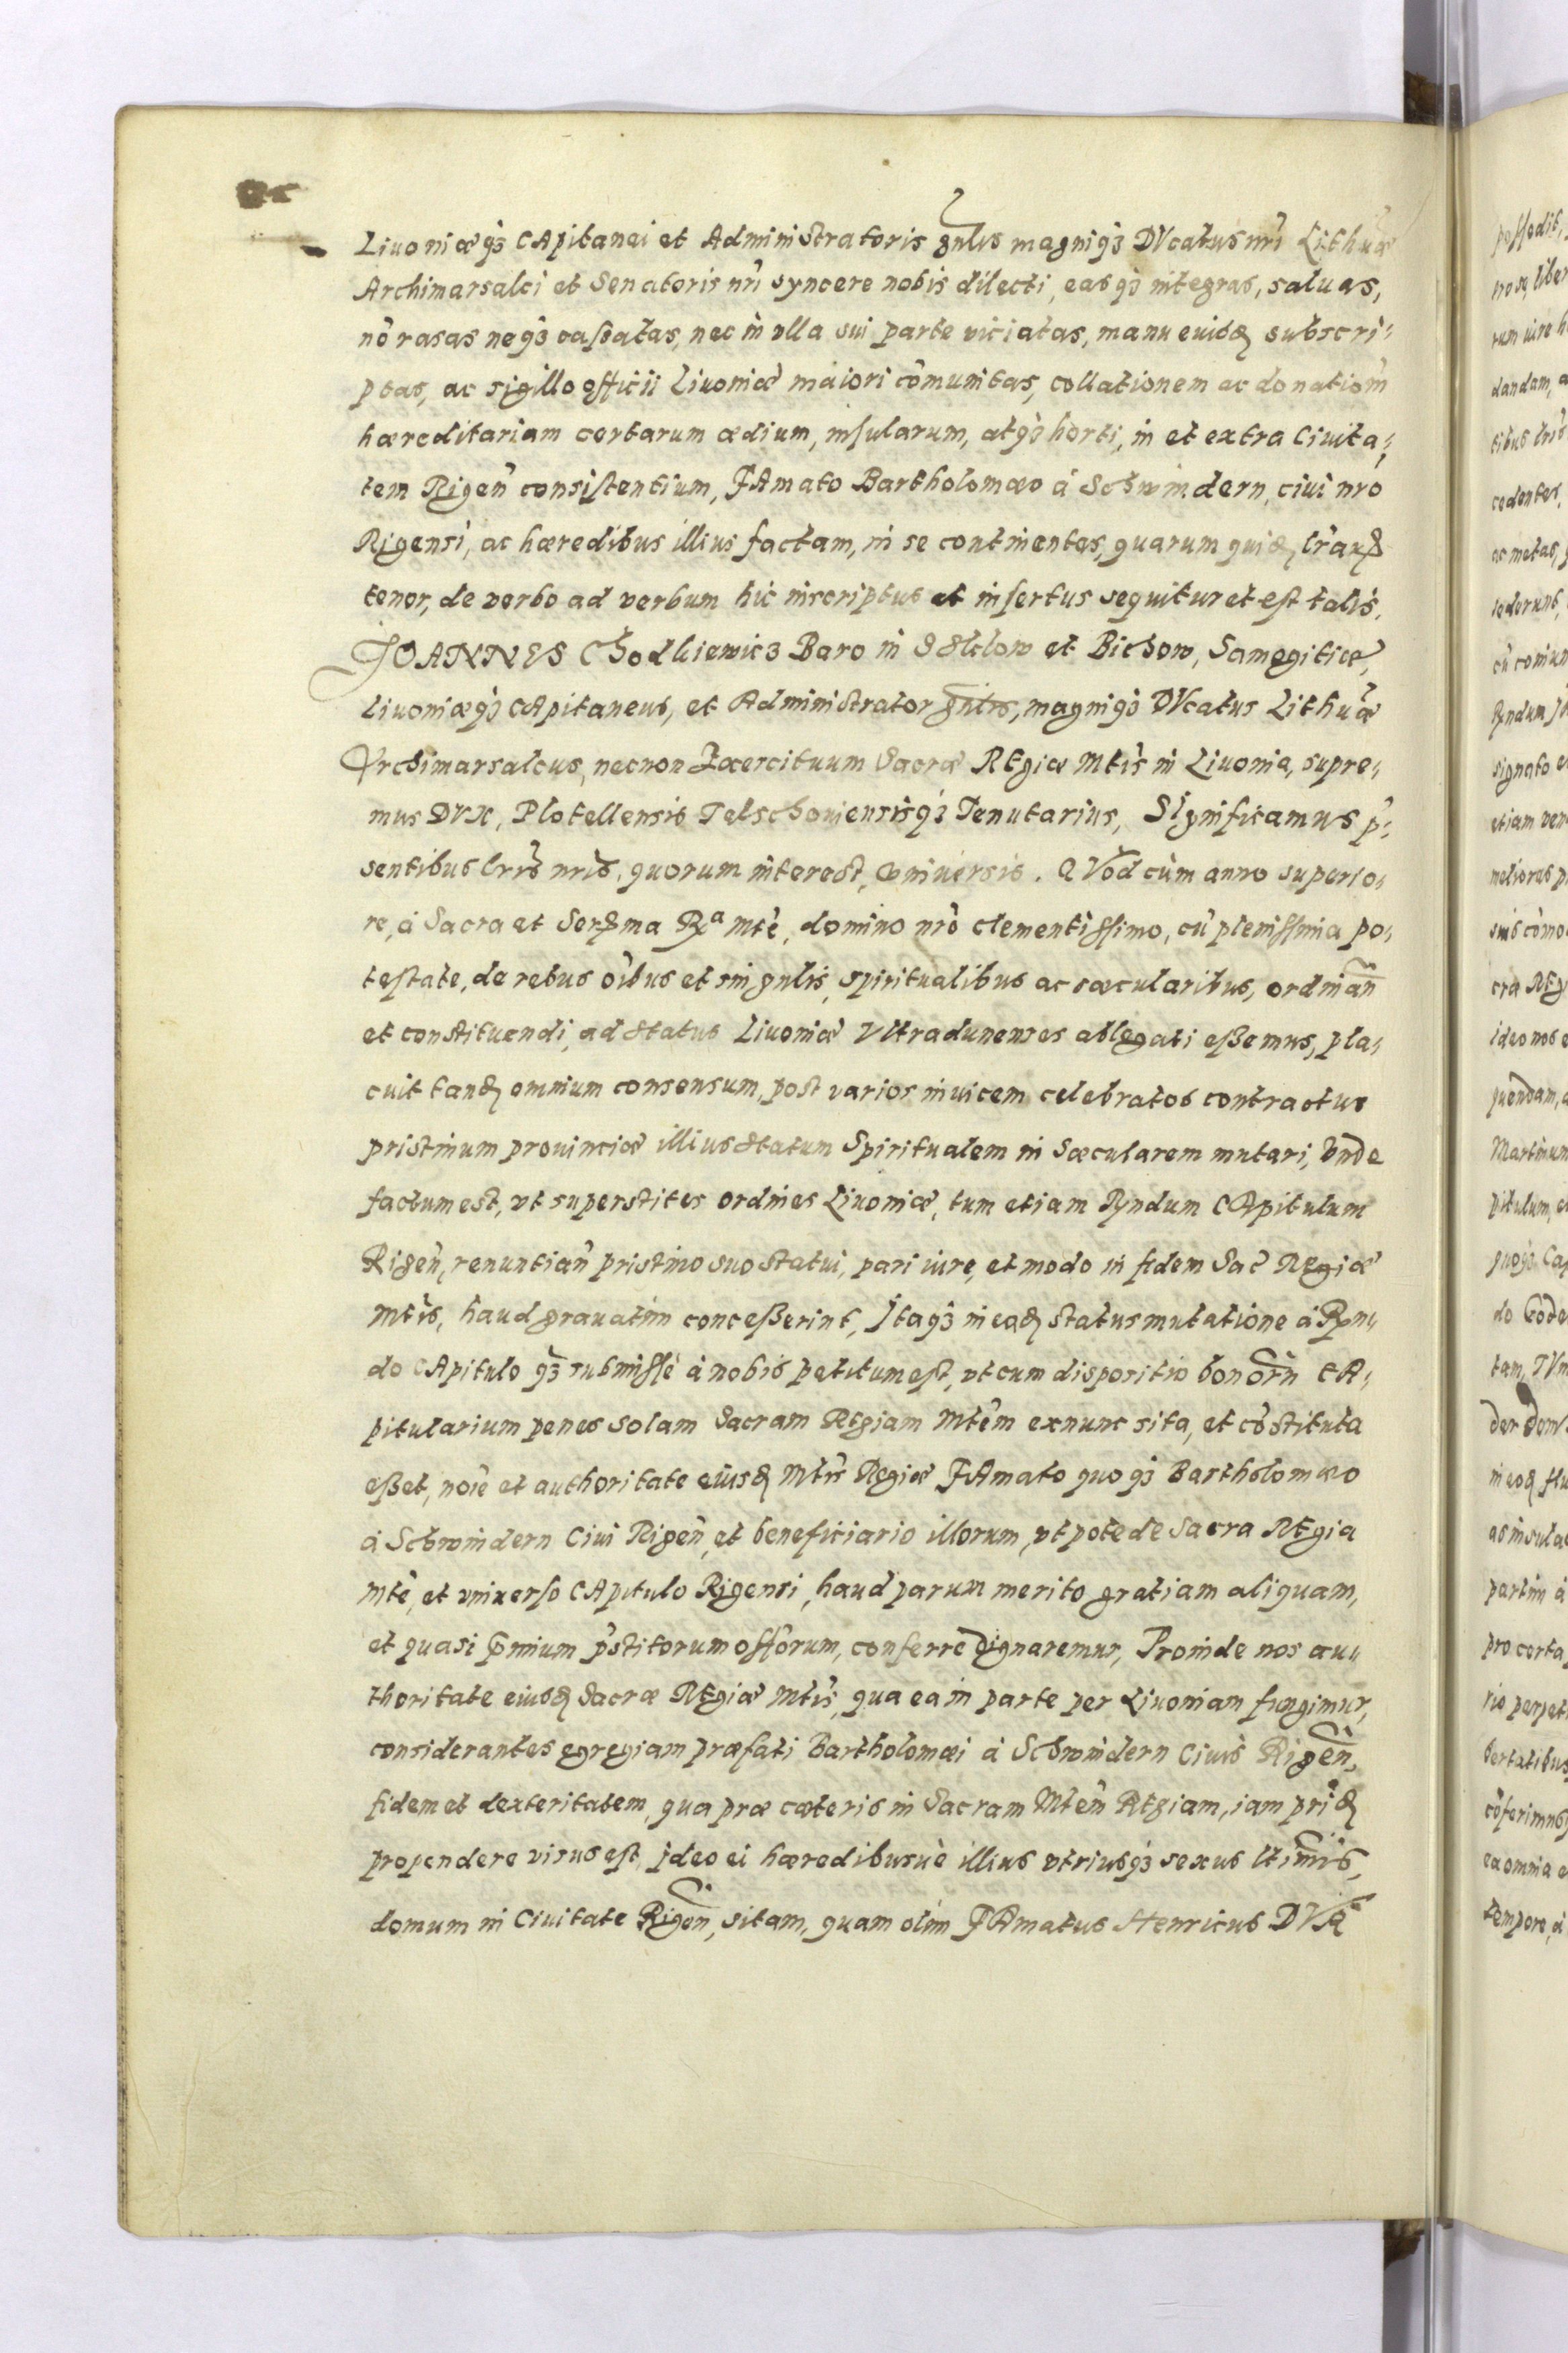 Liuoniæqȝ CApitanei et Administratoris gnl̃is magniqȝ DVcatus nr̃i Lithuæ
Archimarsalci et Senatoris nr̃i syncere nobis dilecti, easqȝ integras, saluas,
nõ rasas neqȝ cassatas, nec in vlla sui parte viciatas, manu euisdē subscri-
ptas, ac sigillo officii Liuoniæ maiori cõmunitas, collationem ac donatiom̃
hæreditariam certarum ædium, insularum, atqȝ horti, in et extra Ciuita-
tem Rigen̄ consistentium, FAmato Bartholomæo á Schwindern, ciui nro
Rigensi, ac hæredibus illius factam, in se continentes, quarum quidē lr̃arum
tenor, de verbo ad verbum hic inscriptus et insertus sequitur et est talis.
JOANNES Chodkiewicz Baro in Schklow et Bichow, Samegitiæ,
Liuoniæqȝ CApitaneus, et Administrator gnl̃is, magniqȝ DVcatus Lithuæ
Archimarsalcus, necnon Exercituum Sacræ REgiæ Mtis in Liuonia, supre-
mus DVX, Plotellensis Telschouiensisqȝ Tenutarius, SIgnificamus p̃-
sentibus lr̃is nr̃is, quorum interest, vniuersis. QVod cùm anno superio-
re, á Sacra et Serma Rᵃ Mtè, domino nr̃o clementissimo, cũ plenissima po-
testate, de rebus oĩbus et singulis, spiritualibus ac sæcularibus, ordinan̄
et constituendi, ad status Liuoniæ Vltradunenses ablegati eßemus, pla-
cuit tandē omnium consensum, post varios inuicem celebratos contractus
pristinum prouinciæ illius statum Spiritualem in Sæcularem mutari, Vnde
factum est, vt superstites ordines Liuoniæ, tum etiam Rṽndum CApitulum
Rigen̄, renuntian̄ pristino suo statui, pari iure, et modo in fidem Sac̃ Regiæ
Mtis, haud grauatim conceßerint, Itaqȝ in eadē status mutatione á Rṽn-
do CApitulo qȝ submissè á nobis petitum est, vt cum dispositio bonorum̃ CA-
pitularium penes solam Sacram REgiam Mtem̃ exnunc sita, et cõstituta
eßet, noĩe et authoritate eiusdē Mtis Regiæ FAmato quoqȝ Bartholomæo
á Schwindern Ciui Rigen̄, et beneficiario illorum, vtpote de Sacra REgia
Mtè, et vniuerso CApitulo Rigensi, haud parum merito gratiam aliquam,
et quasi p̃mium p̃stitorum offõrum, conferre dignaremur, Proinde nos au-
thoritate eiusdē Sacræ REgiæ Mtis, qua ea in parte per Liuoniam fungimur,
considerantes egregiam præfati Bartholomæi á Schwindern Ciuis Rigen̄,
fidem et dexteritatem, qua præ cæteris in Sacram Mtem̃ REgiam, iam pridē
propendere visus est, Ideo ei hæredibusuè illius vtriusqȝ sexus lt̃imis,
domum in Ciuitate Rigen̄, sitam, quam olim FAmatus Henricus DVR